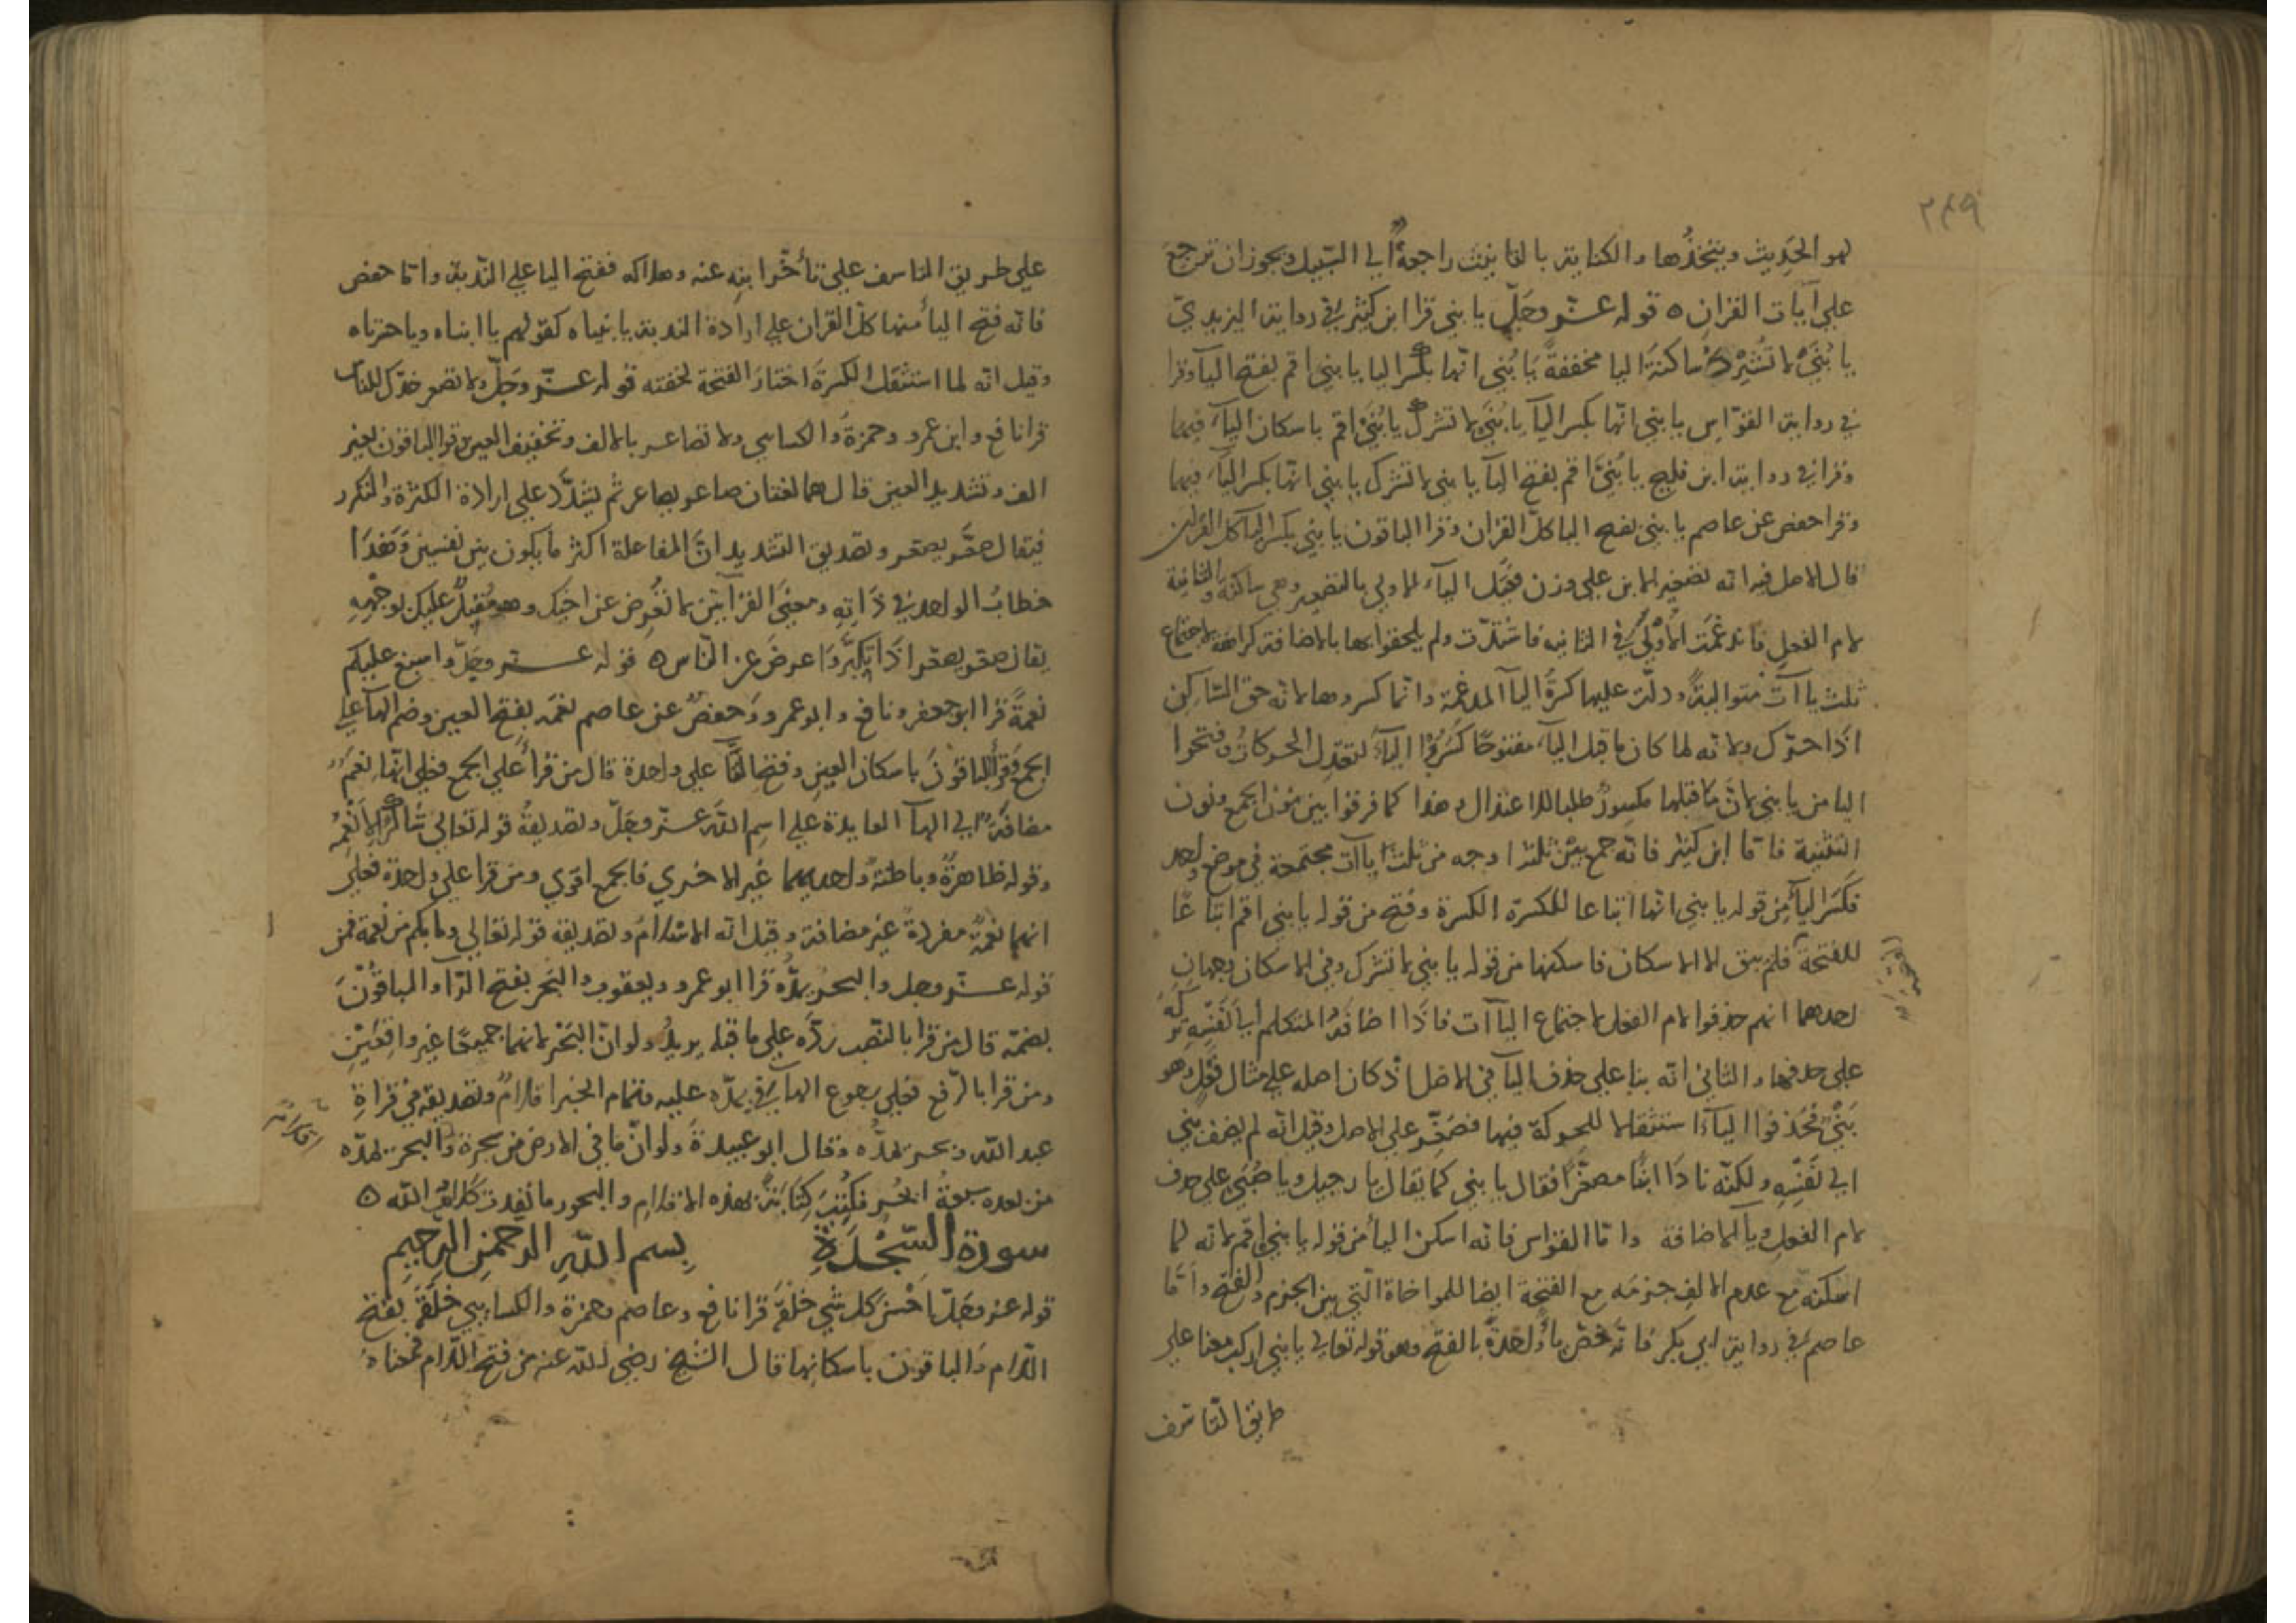 ٢٤٩
لهو الحديث ويتخذُها والكناية بالتانيث راجعةٌ الي السّبيل ويجوز ان ترجعَ
علي آيات القرانِ ه قوله عزّ وجَلّ يا بني قرا ابن كثير في رواية اليزيديّ
يا بُنَيْ لا تُشْرِكْ ساكنةَ اليا مخففةً يَا بُنيِ انّها بكسر اليا يا بنيَ اقم بفتح اليآ وقرا
في رواية القوّاس يا بني انّها بكسر اليآ يا بُنَيْ لا تشرك يا بُنَيْ اقم باسكان اليآء فيهما
وقرا في رواية ابن فليح يا بُنيَّ اقم بفتح اليآ يا بني لا تشرك يا بني انّها بكسر اليآء فيهما
وقرا حفص عن عاصم يا بني بفتح اليا كلّ القران وقرا الباقون يا بني بكسر اليآ كل القران
قال الاصل فيه انه تصغير الابن علي وزن فُعَيل اليآء الاولي يا التصغير وهي ساكنة والثانية
لام الفعل فاندغمَت الاُوليُ في الثانيه فاشتدّت ولم يلحقوا بها يا الاضافة كراهة لاجتماع
ثلث ياآتٍ متواليةً ودلّت عليها كسرةُ اليآ المدغمة وانما كسروها لانه حق السّاكن
اذا حرّك ولانه لما كان ما قبل اليآء مفتوحًا كَسَرُوا اليآءَ لتعدّل الحركاتُ وفتحوا
اليا من يا بني لانّ ما قبلها مكسورٌ طلبا للاعتدال وهذا كما فرقوا بين نون الجمع ونون
التثنية فاما ابن كثير فانه جمع بين ثلثة اوجه من ثلث ياآت مجتمعة في موضع واحد
فكسَر اليآ من قوله يا بني انها اتباعا للكسرة الكسرة وفتح من قوله يا بني اقم اتباعًا
للفتحة فلم يبق الا الاسكان فاسكنها من قوله يا بني لا تشرك وفي الاسكان وجهان
احدهما انهم حذفوا لام الفعل لاجتماع اليآات فاذا اضافهُ المتكلم الي نفسِه تركهُ
علي حذفها والثاني انه بنا علي حذف اليآ في الاصل اذ كان اصله علي مثال فَعَلٍ وهو
بَنَيٌ فحذفوا اليآء استثقالا للحركة فيها فصُغّر علي الاصل وقيل انه لم يضف بني
الي نَفسِه ولكنّه نادا ابنًا مصغّرًا فقال يا بني كما يقال يا رجيل ويا صُبَي علي حذف
لام الفعل ويآ الاضافة واما القواس فانه اسكن اليآ من قوله يا بني اقم لانه لما
اسكنه مع عدم الالف جزمه مع الفتحة ايضا للمواخاة الّتي بين الجزم والفتح وامّا
عاصم في رواية ابي بكر فانّه خصّ ياً واحدةً بالفتح وهو قوله تعالي يا بني اركب معنا علي
طريق التاسف
علي طريق التاسف علي تأخّر ابنِه عنه وهلاكه ففتح اليا علي النّدبة وامّا حفص
فانه فتح اليآ منها كلّ القران علي ارادة الندبة يا بنياه كقولهم يا ابناه ويا حزناه
وقيل انه لما استثقل الكسرةَ اختار الفتحة لخفته قوله عزّ وجلّ ولا تصعر خدّك للناس
قرا نافع وابن عمرو وحمزةُ والكسايي ولا تصاعر بالالف وتخفيف العين وقرا الباقون بغير
الف وتشديد العين قال هما لغتان صاعر يصاعر ثم يشدّد علي ارادة الكثرة والتكرر
فيقال صعّر يصعّر وتصديق التشديد انّ المفاعلة اكثر ما يكون بين نفسين وَهَذَا
خطابُ الواحد في ذَاتِهِ ومعني القرآتين لا تُعرِض عن اخيك وهو مُقبلٌ عليك لوجهِهِ
يقال صعر يصعر اذا تكبَّر واعرضَ عن النّاس ه قوله عزّ وجلّ واسبغ عليكم
نعمةً قرا ابو جعفر ونافع وابو عمرو وحفصٌ عن عاصم نِعَمَه بفتح العين وضم الهآ علي
الجمع وقرأ الباقُونَ باسكان العين وفتح التّآ علي واحدة قال من قرأ علي الجمع فعلي انّها نِعَمٌ
مضافةٌ الي الهآ العايدة علي اسم اللّه عزّ وجَلّ وتصديقُهُ قوله تعالي شاكرًا لِانْعُمِهِ
وقوله ظاهرةً وباطنةً واحديهما غير الاخري فالجمع اقوي ومن قرا علي واحدة فعلي
انهما نعمةٌ مفردةً غير مضافة وقيل انه الاسلامُ وتصديقه قوله تعالي وما بكم من نعمة فمن
قوله عزّ وجل والبحرُ يمدُّه قرا ابو عمرو ويعقوب والبَحرَ بفتح الرّآ والباقُونَ
بضمّه قال من قرا بالنّصب ردّه علي ما قبله يريدُ ولو انّ البَحْرَ لانهما جميعًا غير واقعَيْنِ
ومن قرا بالرّفع فعلي رجوع الهآ في يمدّه عليه وتمام الخبر اقلامٌ وتصديقه في قراةِ
عبد اللّه وبحر يمدُّه وقال ابو عبيدةَ ولو انّ ما في الارض من شجرة والبحر يمدّه
من بعده سبعةُ ابحُر فكُتِبَ كِتَابَةً بهذه الاقلامِ والبحور ما نفدت كلام اللّه ه
اقلامٌ
سورة السَّجْدَةِ بِسم اللّهِ الرّحمنِ الرّحِيمِ
قوله عزّ وجَلّ احْسَن كل شي خلقَهُ قرا نافع وعاصم وحمزة والكسايي خَلَقَهُ بفتح
اللّام والباقون باسكانِها قال الشيخ رضي اللّه عنه من فتح اللّام فمعناهُ